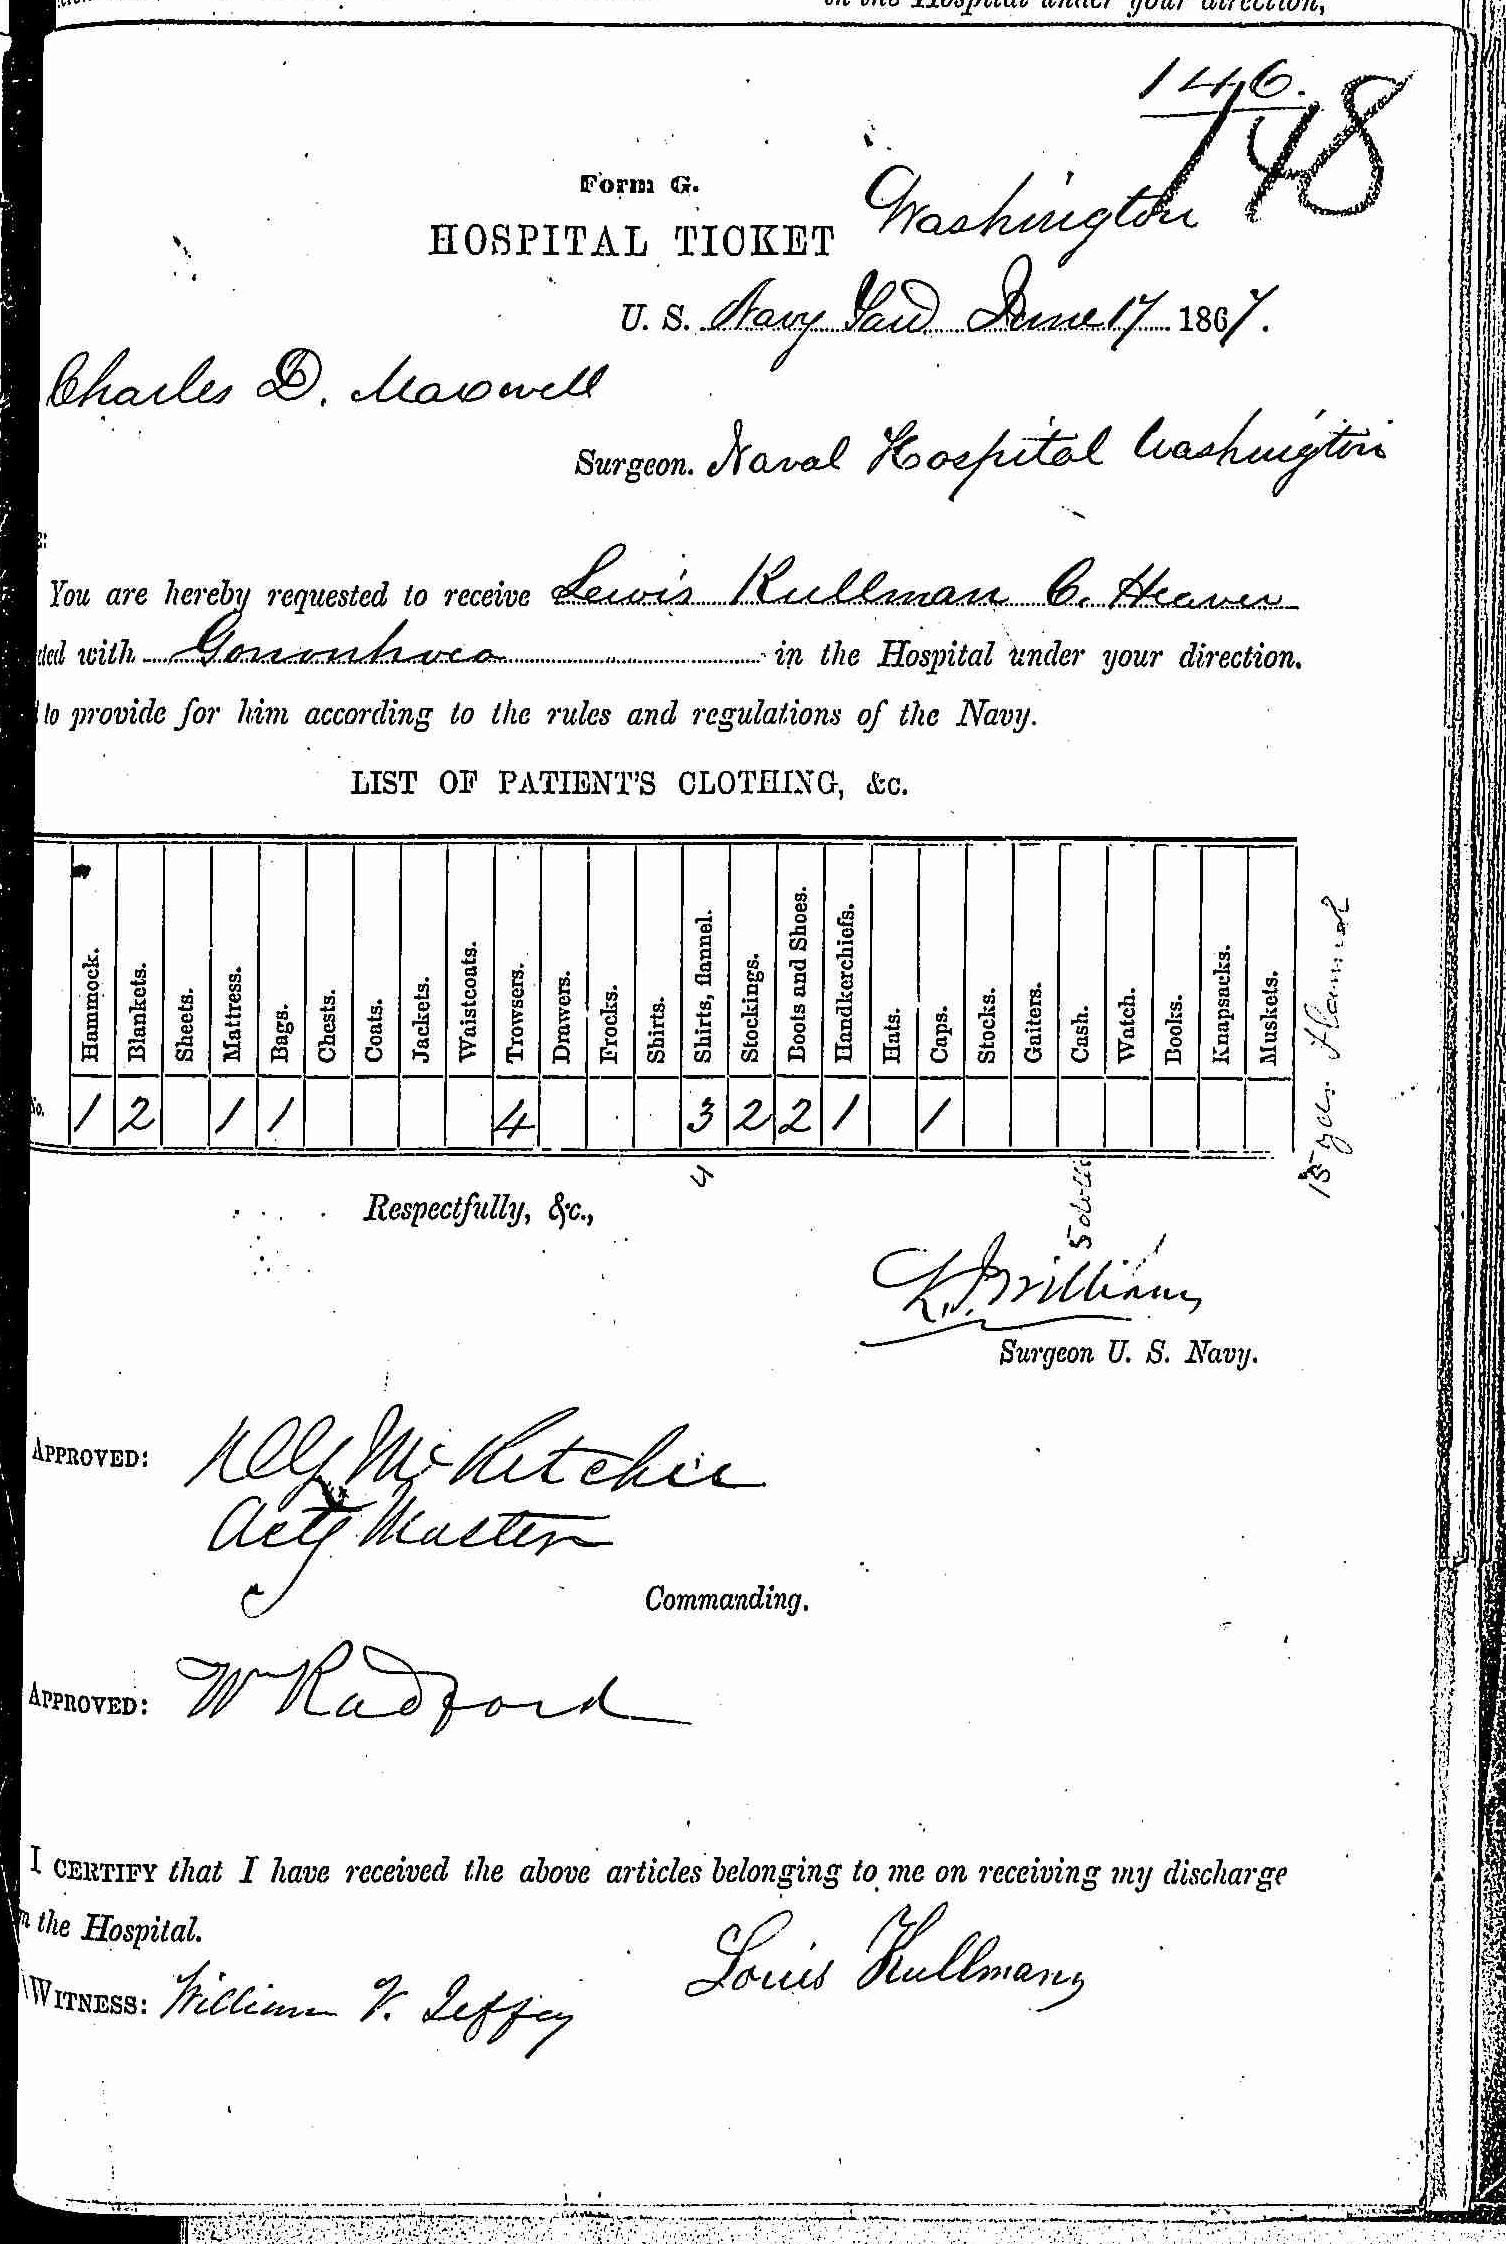 in the Hospital under your direction,
146.
148
Form G.
HOSPITAL TICKET Washington
U. S. Navy Yard June 17 1867.
Charles D. Maxwell
Surgeon. Naval Hospital Washington
You are hereby requested to receive Lewis Kullman C. Heaver
ted with Gonorrhoea in the Hospital under your direction.
to provide for him according to the rules and regulations of the Navy.
LIST OF PATIENT'S CLOTHING, &c.
Hammock. Blankets. Sheets. Mattress. Bags. Chests. Coats. Jackets. Waistcoats. Trowsers. Drawers. Frocks. Shirts. Shirts, flannel. Stockings. Boots and Shoes. Handkerchiefs. Hats. Caps. Stocks. Gaiters. Cash. Watch. Books. Knapsacks. Muskets. 15 yds flannel
No. 1 2 1 1 4 3 2 2 1 1
4
Respectfully, &c.,
Williams
Surgeon U. S. Navy.
APPROVED: McKetchie
Actg Master
Commanding.
APPROVED: Wm Radford
I CERTIFY that I have received the above articles belonging to me on receiving my discharge
the Hospital.
Louis Kullmann
WITNESS: William V.